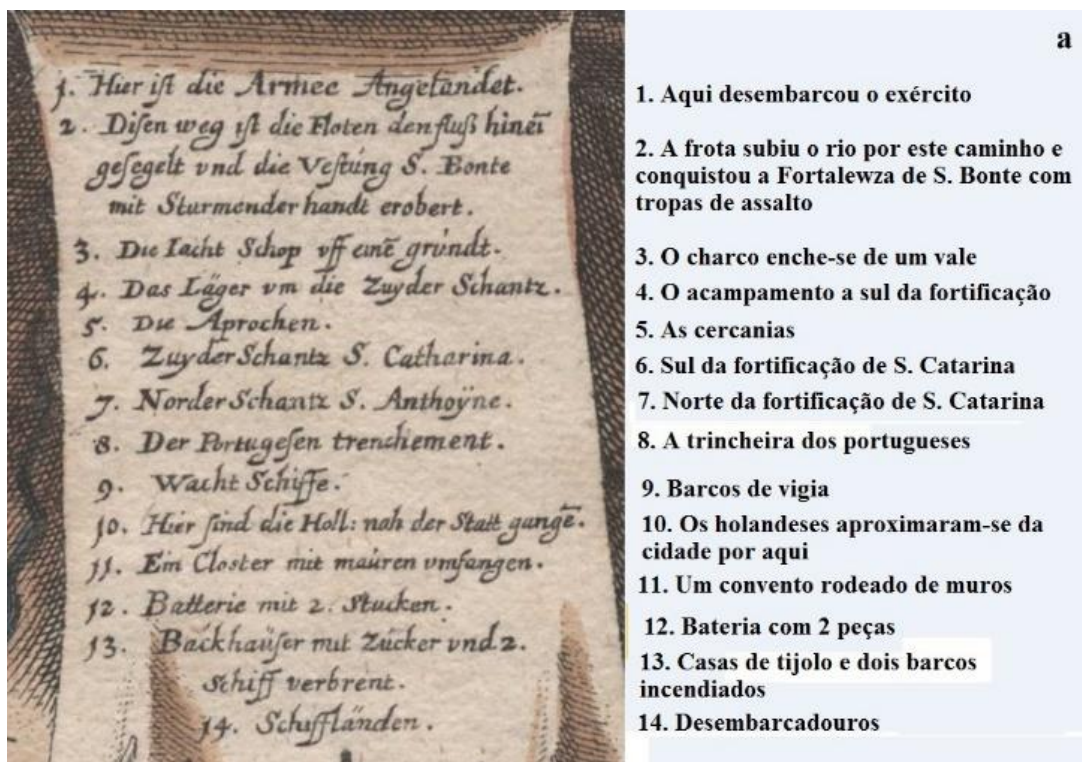 1. Hier ist die Armee Angeländet.
2. Disen weg ist die Floten den fluß hineī
gesegelt vnd die Vestung S. Bonte
mit Sturmender handt erobert.
3. Die Iacht Schop vff einē grundt.
4. Das Läger vm die Zuyder Schantz.
5. Die Aprochen.
6. Zuyder Schantz S. Catharina.
7. Norder Schantz S. Anthoÿne.
8. Der Portugesen trenchement.
9. Wacht Schiffe.
10. Hier sind die Holl: nah der Statt gangē.
11. Ein Closter mit mauren vmfangen.
12. Batterie mit 2. Stucken.
13. Backhaüser mit Zücker vnd 2.
Schiff verbrent.
14. Schiffländen.
a
1. Aqui desembarcou o exército
2. A frota subiu o rio por este caminho e
conquistou a Fortalewza de S. Bonte com
tropas de assalto
3. O charco enche-se de um vale
4. O acampamento a sul da fortificação
5. As cercanias
6. Sul da fortificação de S. Catarina
7. Norte da fortificação de S. Catarina
8. A trincheira dos portugueses
9. Barcos de vigia
10. Os holandeses aproximaram-se da
cidade por aqui
11. Um convento rodeado de muros
12. Bateria com 2 peças
13. Casas de tijolo e dois barcos
incendiados
14. Desembarcadouros